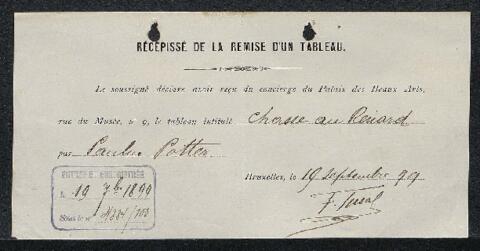 RÉCÉPISSÉ DE LA REMISE D'UN TABLEAU.
Le soussigné déclare avoir reçu du concierge du Palais des Beaux Arts,
rue du Musée, n° 9, le tableau intitulé Chasse au Renard
par Paulus Potter
Bruxelles, le 19 Septembre 99
ENTRÉE ENREGISTRÉE
Le 19 7bre 1899
Sous le n°